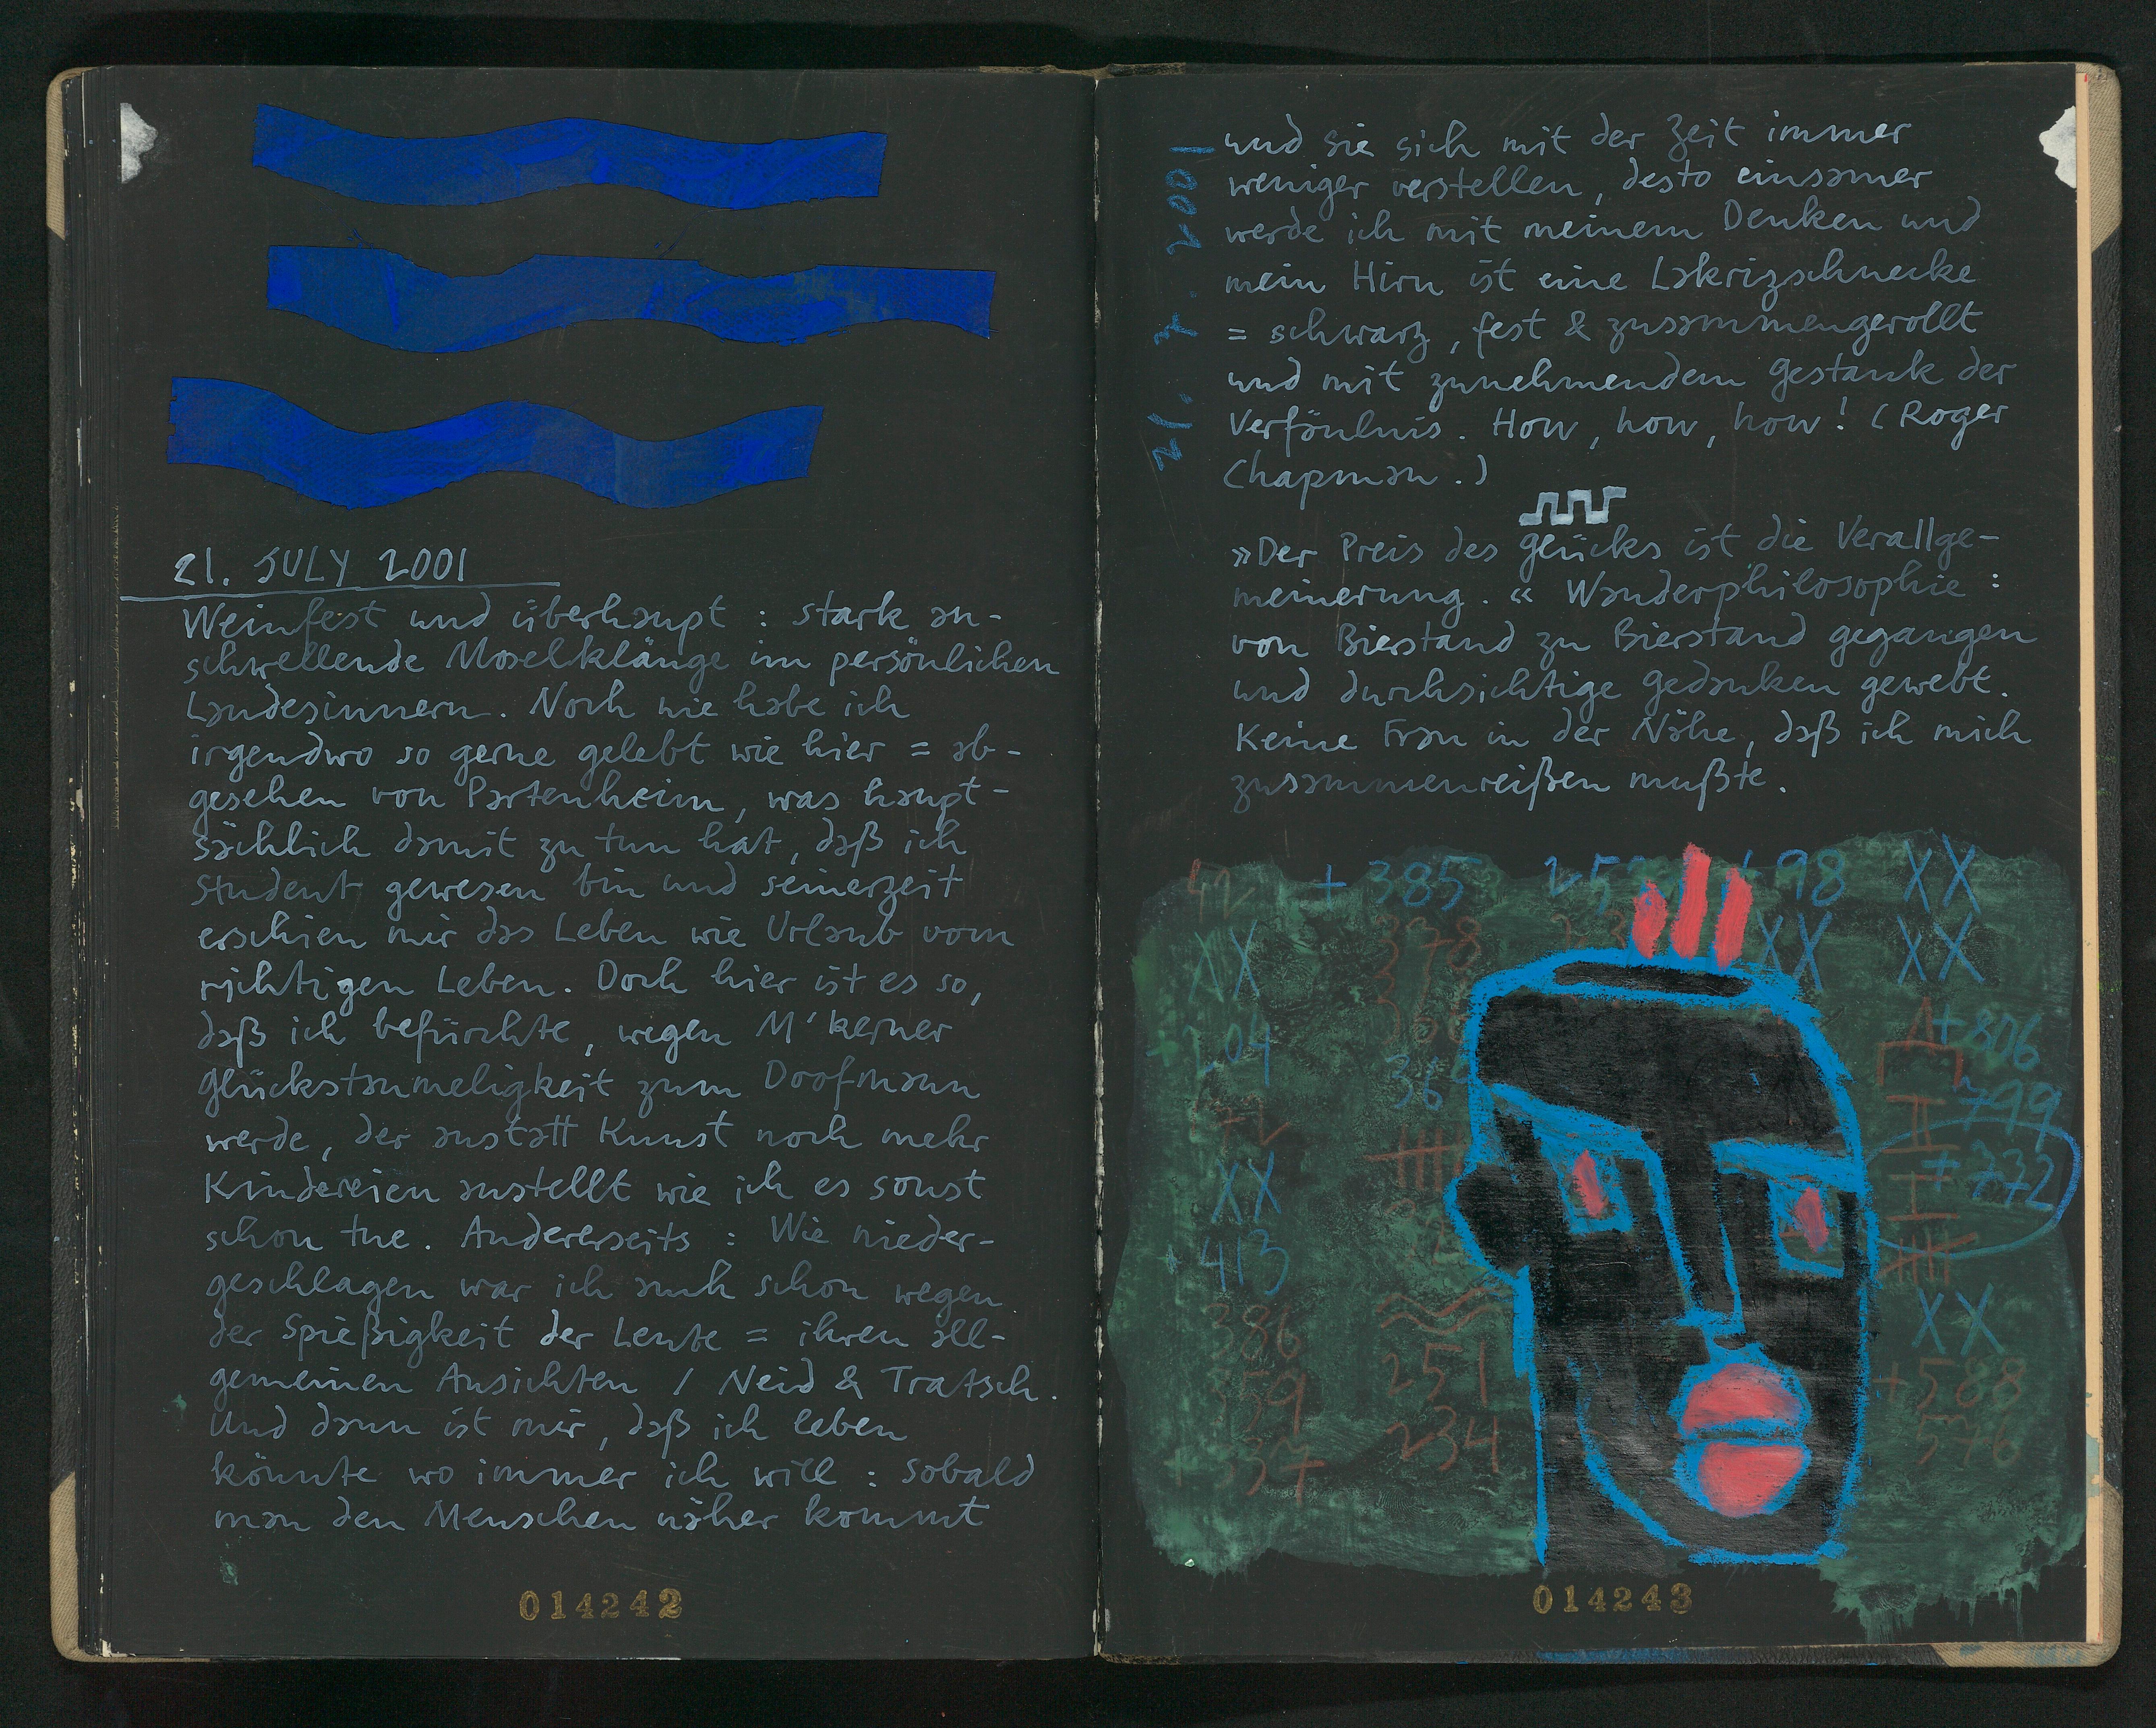 21. JULY 2001
Weinfest und überhaupt : stark an-
schwellende Moselklänge im persönlichen
Landesinnern. Noch nie habe ich
irgendwo so gerne gelebt wie hier = ab-
gesehen von Partenheim, was haupt-
sächlich damit zu tun hat, daß ich
Student gewesen bin und seinerzeit
erschien mir das Leben wie Urlaub vom
richtigen Leben. Doch hier ist es so,
daß ich befürchte, wegen M'kerner
Glückstaumeligkeit zum Doofmann
werde, der anstatt Kunst noch mehr
Kindereien anstellt wie ich es sonst
schon tue. Andererseits : Wie nieder-
geschlagen war ich auch schon wegen
der Spießigkeit der Leute = ihren all-
gemeinen Ansichten / Neid & Tratsch.
Und dann ist mir, daß ich leben
könnte wo immer ich will : sobald
man den Menschen näher kommt
014242
21. 7. 2001
und sie sich mit der Zeit immer
weniger verstellen, desto einsamer
werde ich mit meinem Denken und
mein Hirn ist eine Lakrizschnecke
= schwarz, fest & zusammengerollt
und mit zunehmendem Gestank der
Verfäulnis. How, how, how! (Roger
Chapman.)
»Der Preis des Glücks ist die Verallge-
meinerung.« Wanderphilosophie :
von Bierstand zu Bierstand gegangen
und durchsichtige Gedanken gewebt.
Keine Frau in der Nähe, daß ich mich
zusammenreißen mußte.
42 + 385 98 XX
XX 378 XX XX
+806
36
799
+772
XX
+413
XX
386
359 251 +588
234 576
014243